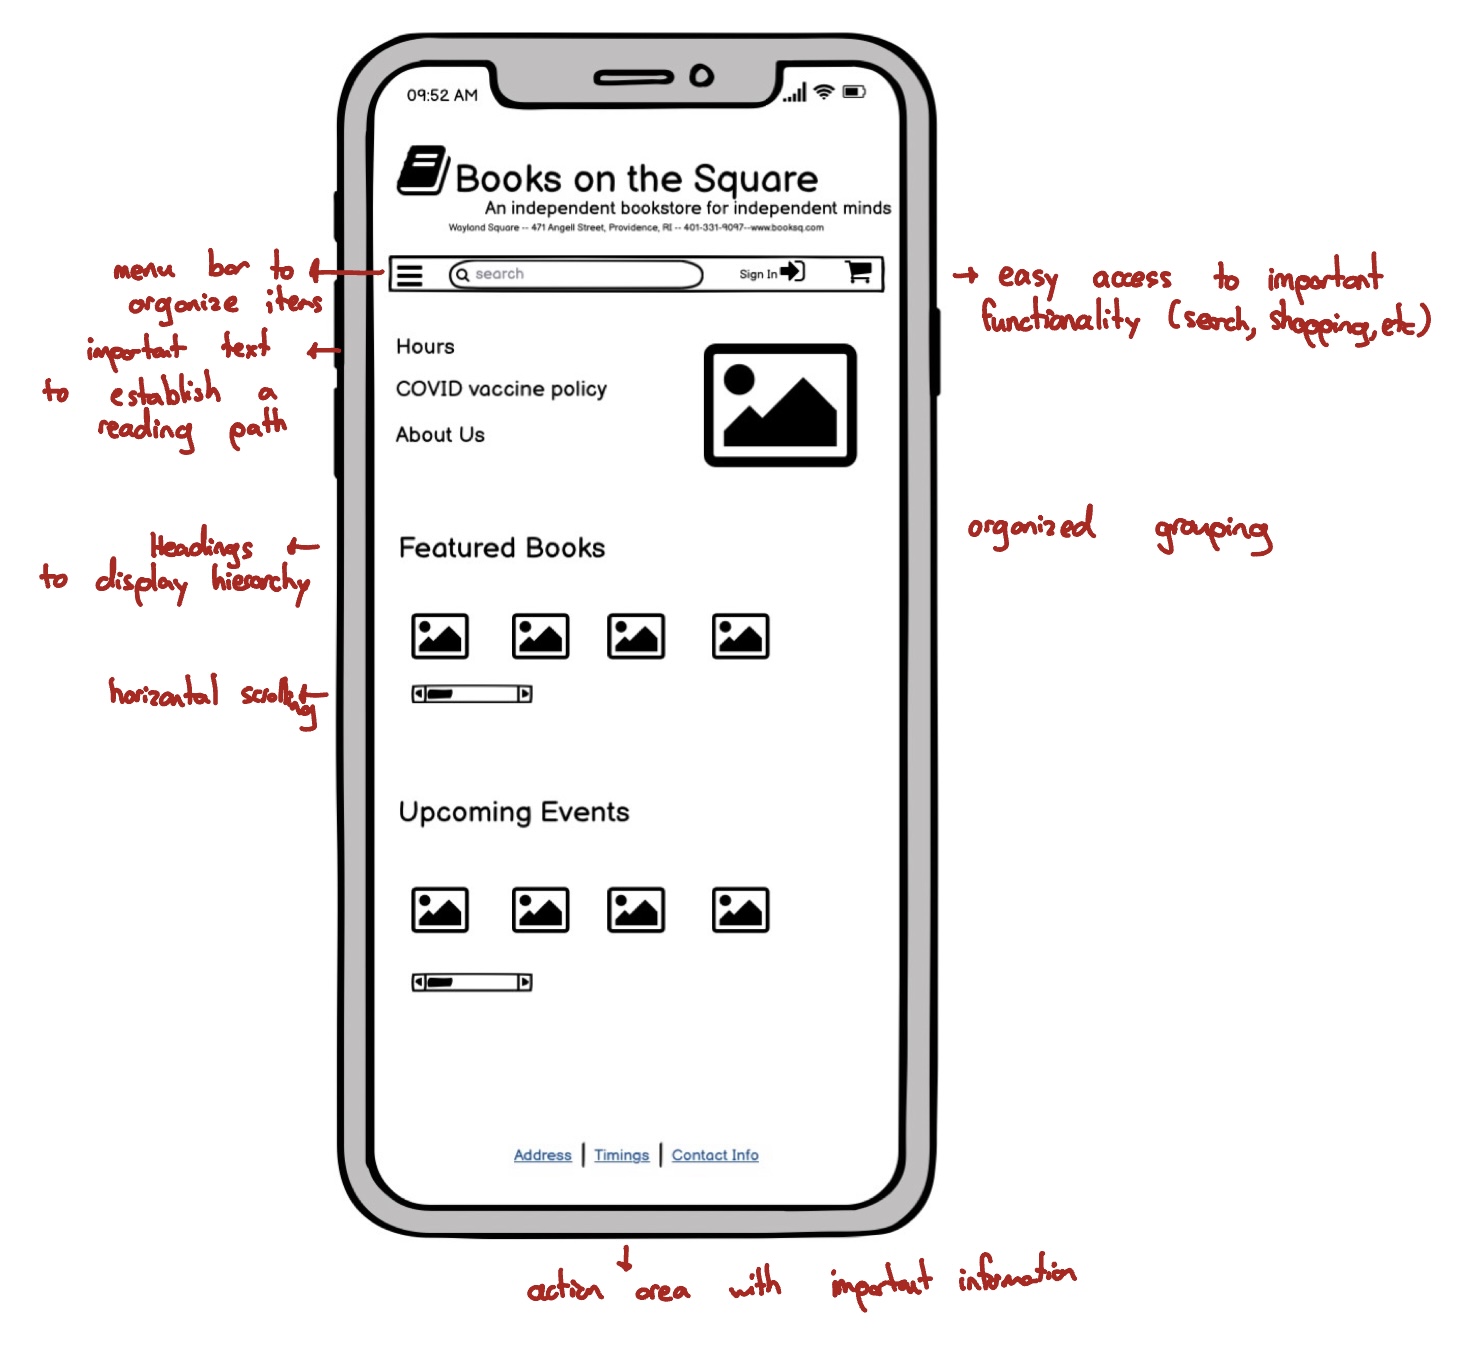 09:52 AM
Books on the Square
An independent bookstore for independent minds
Wayland Square -- 471 Angell Street, Providence, RI -- 401-331-9097--www.booksq.com
search
Sign In
menu bar to
organize items
easy access to important
functionality (search, shopping, etc)
important text
to establish a
reading path
Hours
COVID vaccine policy
About Us
Headings
to display hierarchy
Featured Books
organized grouping
horizontal scrolling
Upcoming Events
Address | Timings | Contact Info
action area with important information